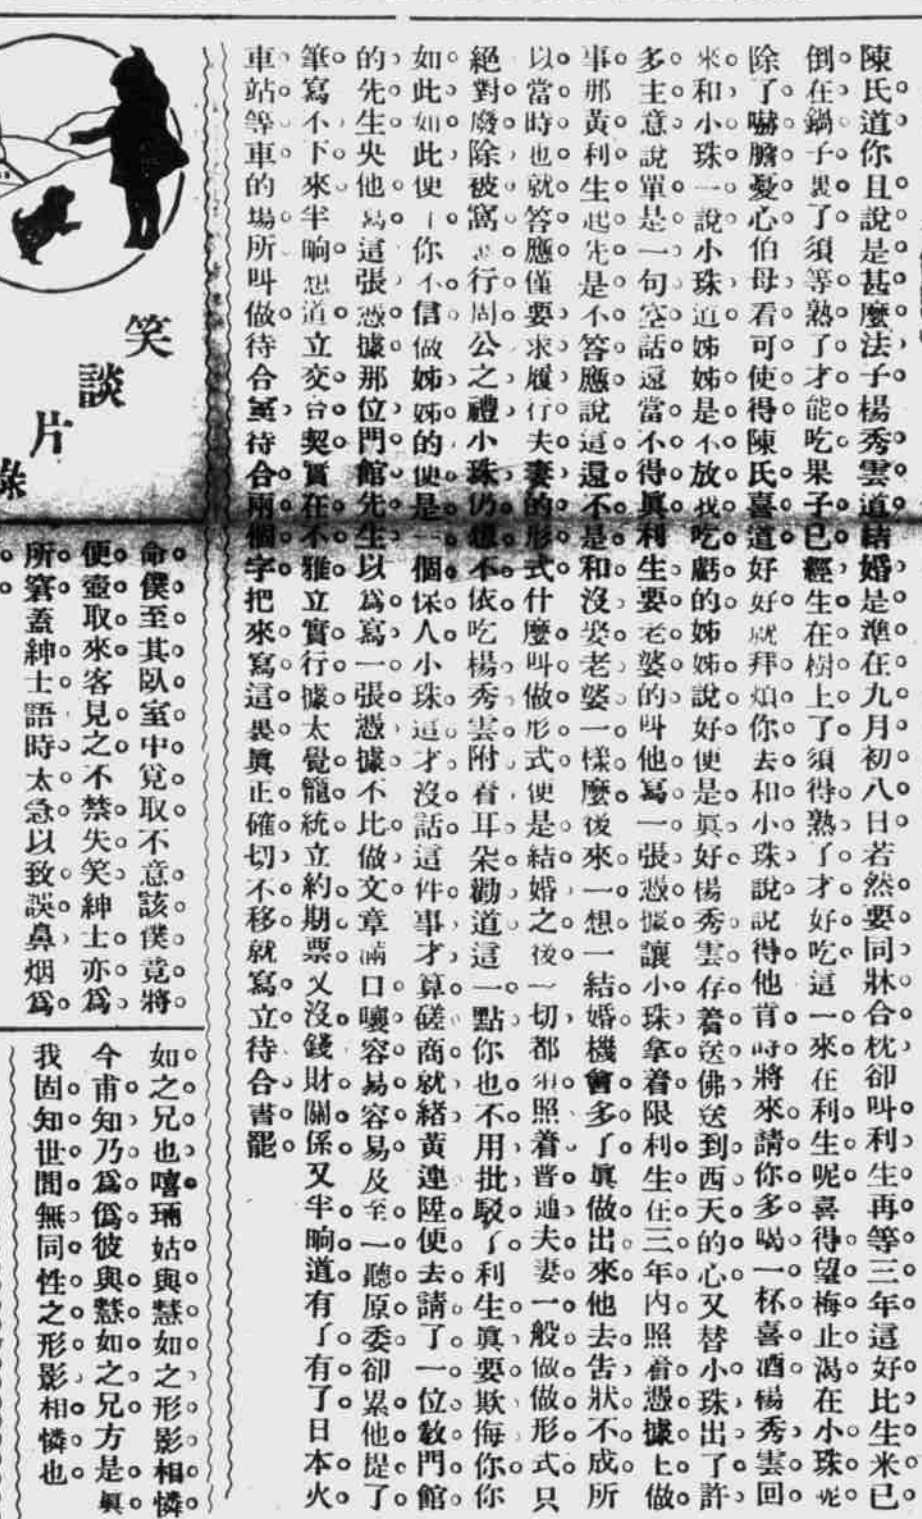 陳氏道。你且說是甚麼法子。楊秀雲道。結婚是準在九月初八日。若然要同牀合枕。卻叫利生再等三年。這好比生米已
倒在鍋子裏了。須等熟了才能吃。果子已經生在樹上了。須得熟了才好吃。這一來在利生呢。喜得望梅止渴。在小珠呢
除了嚇膽憂心。伯母看可使得。陳氏喜道。好好。就拜煩你去和小珠說。說得他肯時。將來請你多喝一杯喜酒。楊秀雲回
來和小珠一說。小珠道。姊姊是不放我吃虧的。姊姊說好便是眞好。楊秀雲存着送佛送到西天的心。又替小珠出了許
多主意。說單是一句空話還當不得眞。利生要老婆的。叫他寫一張憑據。讓小珠拿着。限利生在三年內照着憑據上做
事。那黃利生起先是不答應。說這還不是和沒娶老婆一樣麼。後來一想。一結婚機會多了。眞做出來他去告狀不成。所
以當時也就答應。僅要求履行夫妻的形式。什麼叫做形式。便是結婚之後。一切都須照着普通夫妻一般做做形式。只
絕對廢除被窩裏行周公之禮。小珠仍想不依。吃楊秀雲附着耳朵勸道。這一點你也不用批駁了。利生眞要欺侮你。你
如此如此便了。你不信。做姊姊的便是一個保人。小珠這才沒話。這件事才算磋商就緒。黃連陞便去請了一位敎門館
的先生。央他寫這張憑據。那位門館先生以爲寫一張憑據。不比做文章。滿口嚷容易容易。及至一聽原委。卻累他提了
筆寫不下來。半晌想道。立交合契實在不雅。立實行據太覺籠統。立約期票又沒錢財關係。又半晌道。有了有了。日本火
車站等車的場所叫做待合室。待合兩個字把來寫這裏。眞正確切不移。就寫立待合書罷。
笑談片
命僕至其臥室中覓取。不意該僕竟將
便壺取來。客見之不禁失笑。紳士亦爲
所窘。蓋紳士語時太急。以致誤鼻烟爲
如之兄也。嘻。琍姑與慧如之形影相憐
今甫知乃爲僞。彼與慧如之兄方是眞
我固知世間無同性之形影相憐也